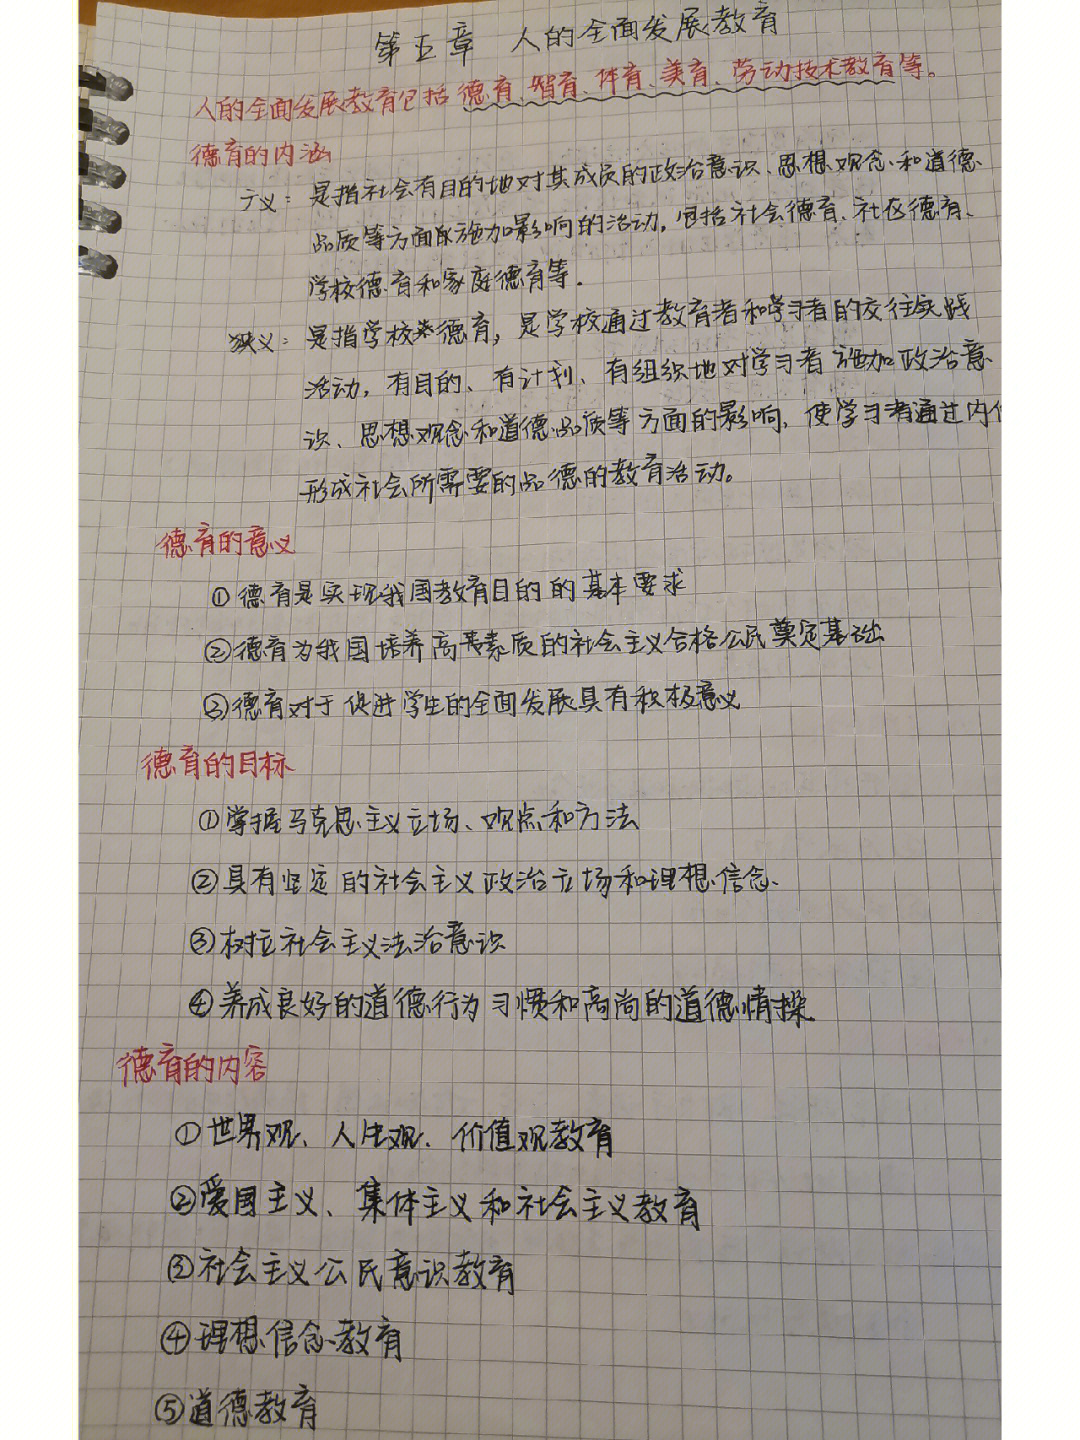 第五章 人的全面发展教育
人的全面发展教育包括德育、智育、体育、美育、劳动技术教育等。
德育的内涵
广义：是指社会有目的地对其成员的政治意识、思想观念和道德
品质等方面施加影响的活动，包括社会德育、社区德育、
学校德育和家庭德育等．
狭义：是指学校德育，是学校通过教育者和学习者的交往实践
活动，有目的、有计划、有组织地对学习者施加政治意
识、思想观念和道德品质等方面的影响，使学习者通过内化
形成社会所需要的品德的教育活动。
德育的意义
①德育是实现我国教育目的的基本要求
②德育为我国培养高素质的社会主义合格公民奠定基础
③德育对于促进学生的全面发展具有积极意义
德育的目标
①掌握马克思主义立场、观点和方法
②具有坚定的社会主义政治立场和理想信念
③树立社会主义法治意识
④养成良好的道德行为习惯和高尚的道德情操
德育的内容
①世界观、人生观、价值观教育
②爱国主义、集体主义和社会主义教育
③社会主义公民意识教育
④理想信念教育
⑤道德教育